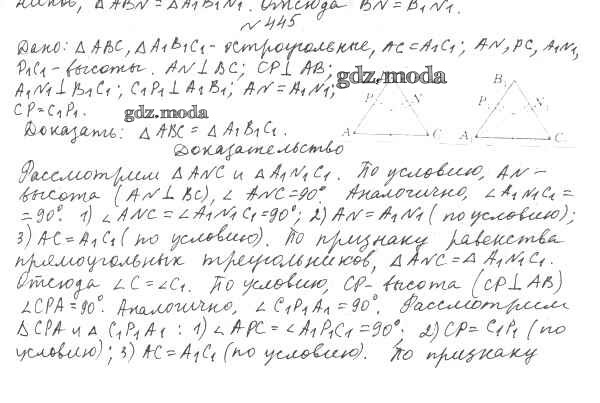 ников, △ABN = △A₁B₁N₁. Отсюда BN = B₁N₁.
№ 445
Дано: △ABC, △A₁B₁C₁ - остроугольные, AC = A₁C₁; AN, PC, A₁N₁,
P₁C₁ - высоты. AN⊥BC; CP⊥AB;
gdz.moda
A₁N₁⊥B₁C₁; C₁P₁⊥A₁B₁; AN = A₁N₁;
CP = C₁P₁.
gdz.moda
P N
A C
B₁
P₁ N₁
A₁ C₁
Доказать: △ABC = △A₁B₁C₁.
Доказательство
Рассмотрим △ANC и △A₁N₁C₁. По условию, AN -
высота (AN⊥BC), ∠ANC = 90°. Аналогично, ∠A₁N₁C₁ =
= 90°. 1) ∠ANC = ∠A₁N₁C₁ = 90°; 2) AN = A₁N₁ (по условию);
3) AC = A₁C₁ (по условию). По признаку равенства
прямоугольных треугольников, △ANC = △A₁N₁C₁.
Отсюда ∠C = ∠C₁. По условию, CP - высота (CP⊥AB)
∠CPA = 90°. Аналогично, ∠C₁P₁A₁ = 90°. Рассмотрим
△CPA и △C₁P₁A₁: 1) ∠APC = ∠A₁P₁C₁ = 90°; 2) CP = C₁P₁ (по
условию); 3) AC = A₁C₁ (по условию). По признаку